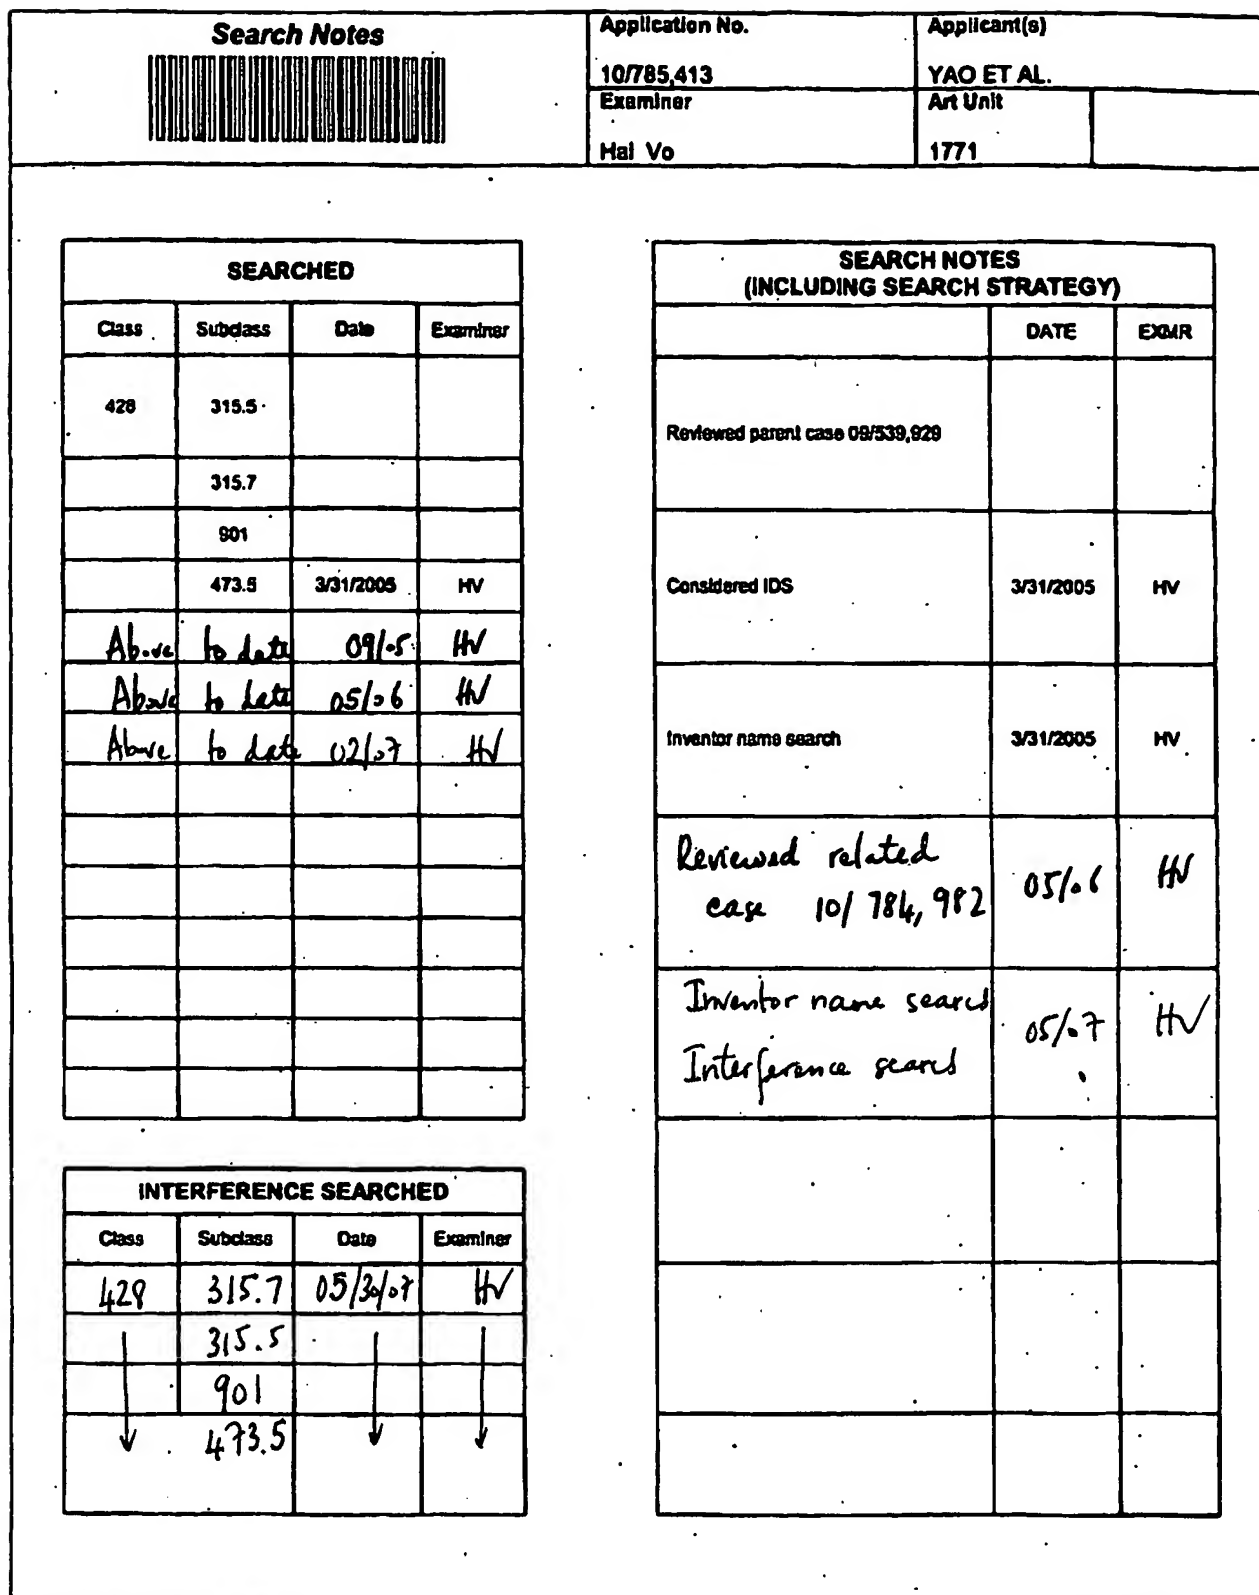 Search Notes
Application No.
Applicant(s)
10/785,413
YAO ET AL.
Examiner
Art Unit
Hai Vo
1771
SEARCHED
Class Subclass Date Examiner
428 315.5
315.7
901
473.5 3/31/2005 HV
Above to date 09/05 HV
Above to date 05/06 HV
Above to date 02/07 HV
INTERFERENCE SEARCHED
Class Subclass Date Examiner
428 315.7 05/30/07 HV
315.5
901
473.5
SEARCH NOTES
(INCLUDING SEARCH STRATEGY)
DATE EXMR
Reviewed parent case 09/539,929
Considered IDS 3/31/2005 HV
Inventor name search 3/31/2005 HV
Reviewed related
case 10/784,982 05/06 HV
Inventor name search
05/07 HV
Interference search